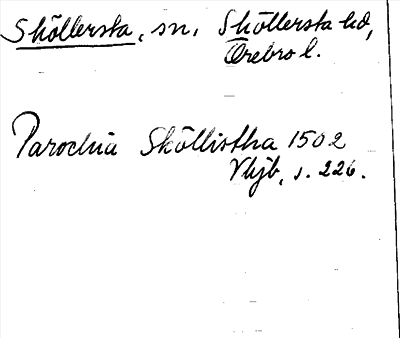 Sköllersta, sn, Sköllersta hd,
Örebro l.
Parochia Sköllistha 1502
Vhjb, s. 226.